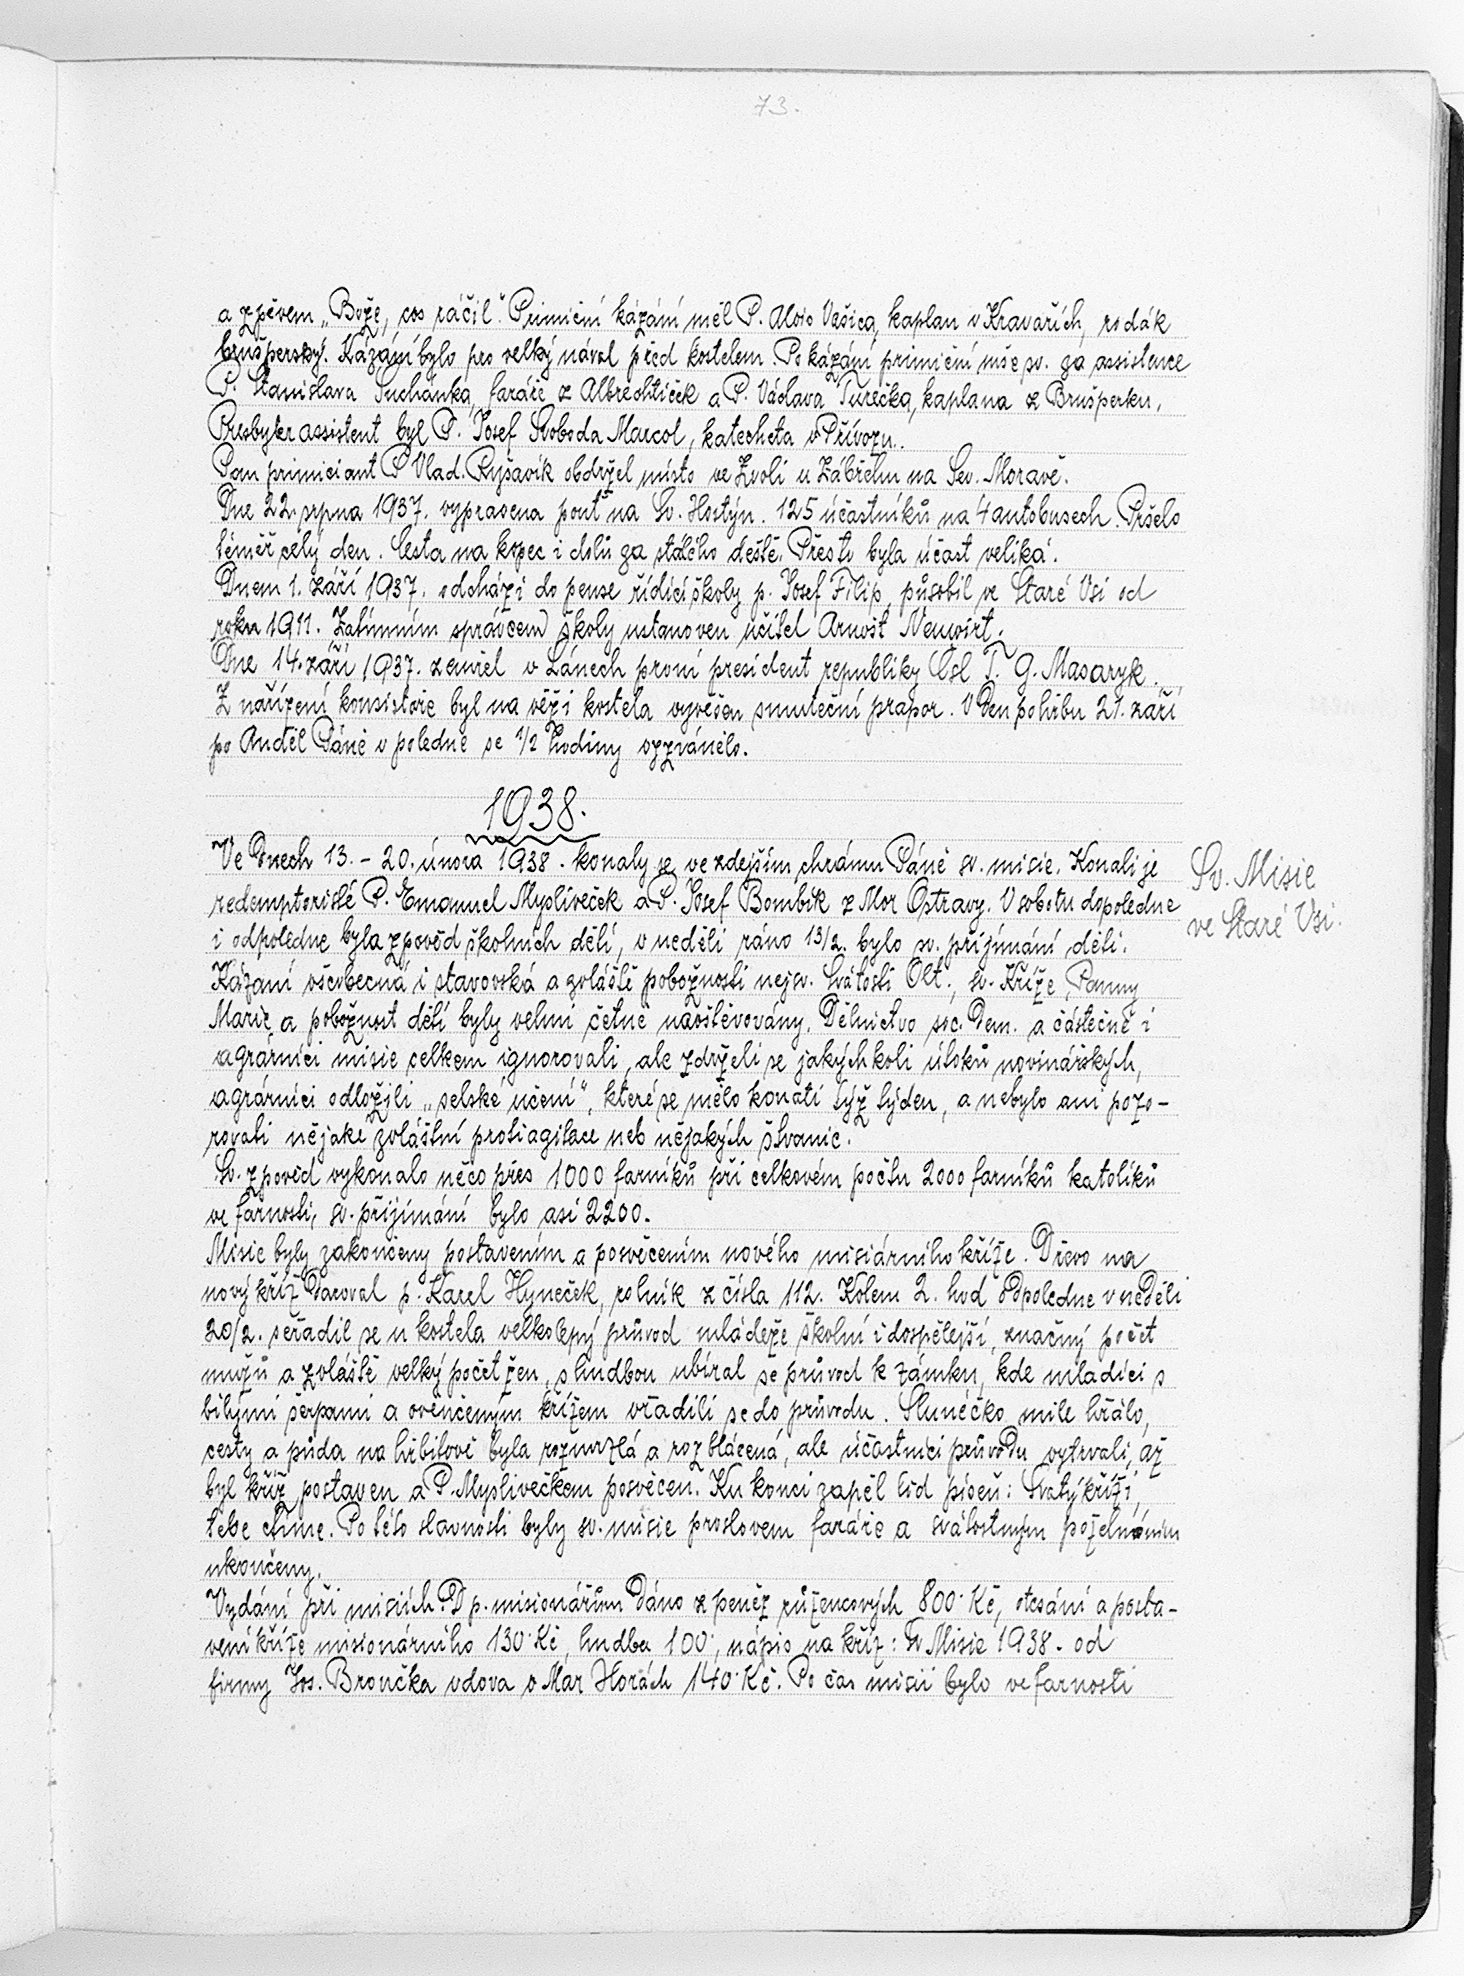 73.
a zpěvem „Bože, cos ráčil". Primiční kázání měl P. Alois Vašica, kaplan v Kravařích, rodák
brušperský. Kázání bylo pro velký nával před kostelem. Po kázání primiční mše sv. za assistence
P. Stanislava Suchánka, faráře z Albrechtiček a P. Václava Turečka, kaplana z Brušperku,
Presbyter assistent byl P. Josef Svoboda Marcol, katecheta v Přívozu.
Pan primiciant P Vlad. Ryšavík obdržel místo ve Zvoli u Zábřehu na Sev. Moravě.
Dne 22. srpna 1937. vypravena pouť na Sv. Hostýn. 125 účastníků na 4 autobusech. Pršelo
téměř celý den. Cesta na kopec i dolů za stálého deště. Přesto byla účast veliká.
Dnem 1. září 1937. odchází do pense řídící školy p. Josef Filip, působil ve Staré Vsi od
roku 1911. Zatímním správcem školy ustanoven učitel Arnošt Neuwirt.
Dne 14. září 1937. zemřel v Lánech první president republiky Čsl T. G. Masaryk.
Z nařízení konsistoře byl na věži kostela vyvěšen smuteční prapor. V den pohřbu 21. září
po Anděl Páně v poledne se 1/2 hodiny vyzvánělo.
1938.
Ve dnech 13. – 20. února 1938. konaly se ve zdejším chrámu Páně sv. misie. Konali je
Sv. Misie
redemptoristé P. Emanuel Myslíveček a P. Josef Bombík z Mor Ostravy. V sobotu dopoledne
ve Staré Vsi.
i odpoledne byla zpověď školních dětí, v neděli ráno 13/2. bylo sv. přijímání dětí.
Kázaní všeobecná i stavovská a zvláště pobožnosti nejsv. Svátosti Olt., sv. Kříže, Panny
Marie a pobožnost dětí byly velmi četně navštěvovány. Dělnictvo soc. dem. a částečně i
agrárníci misie celkem ignorovali, ale zdrželi se jakýchkoli útoků novinářských,
agrárníci odložili „selské učení", které se mělo konati týž týden, a nebylo ani pozo-
rovati nějaké zvláštní protiagitace neb nějakých štvanic.
Sv. zpověď vykonalo něco přes 1000 farníků při celkovém počtu 2000 farníků katolíků
ve farnosti, sv. přijímání bylo asi 2200.
Misie byly zakončeny postavením a posvěcením nového misiárního kříže. Dřevo na
nový kříž daroval p. Karel Hyneček, rolník z čísla 112. Kolem 2. hod odpoledne v neděli
20/2. seřadil se u kostela velkolepý průvod mládeže školní i dospělejší, značný počet
mužů a zvláště velký počet žen, s hudbou ubíral se průvod k zámku, kde mladíci s
bílými šerpami a ověnčeným křížem vřadili se do průvodu. Slunéčko mile hřálo,
cesty a půda na hřbitově byla rozmrzlá a rozblácená, ale účastníci průvodu vytrvali, až
byl kříž postaven a P. Myslivečkem posvěcen. Ku konci zapěl lid píseň: Svatý kříži,
tebe ctíme. Po této slavnosti byly sv. misie proslovem faráře a svátostným požehnáním
ukončeny.
Vydání při misiích: D p. misionářům dáno z peněz růžencových 800.Kč, otesání a posta-
vení kříže misionárního 130.Kč, hudba 100., nápis na kříž: Sv Misie 1938. od
firmy Jos. Broučka vdova v Mar Horách 140.Kč. Po čas misií bylo ve farnosti